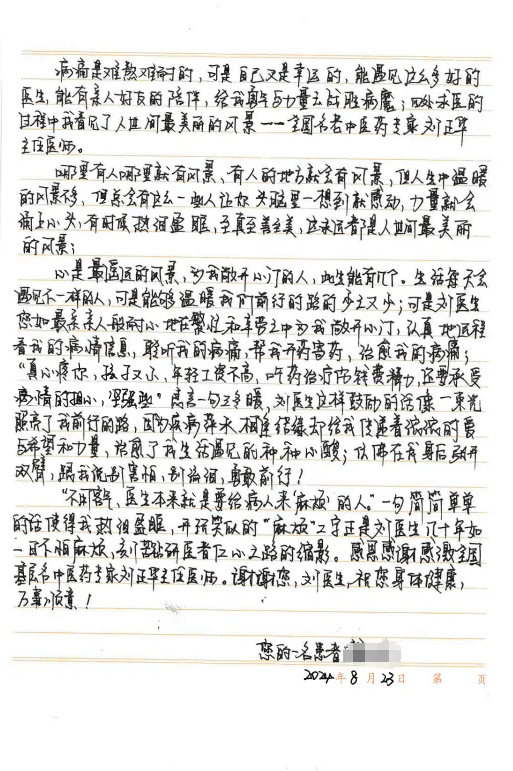 病痛是难熬难耐的，可是自己又是幸运的，能遇见这么多好的
医生，能有亲人好友的陪伴，给我勇气与力量去战胜病魔；四处求医的
过程中我看见了人世间最美丽的风景——全国名老中医药专家刘正华
主任医师。
哪里有人哪里就有风景、有人的地方就会有风景，但人生中温暖
的风景不多，但总会有这么一些人让你头脑里一想到就感动，力量就会
涌上心头，有时候热泪盈眶，至真至善至美，这永远都是人世间最美丽
的风景；
心是最遥远的风景，为我敞开心门的人，此生能有几个。生活每天会
遇见不一样的人，可是能够温暖我们前行的路的少之又少；可是刘医生
您如最亲亲人一般耐心地在繁忙和辛劳之中为我敞开心门，认真地远程
看我的病情信息，聆听我的病痛，帮我开药寄药，治愈我的病痛；
“真心疼你，孩子又小、年轻工资不高，吃药治疗历钱费精力，还要承受
病情的担心，坚强些”良言一句三冬暖，刘医生这样鼓励的话像一束光
照亮了我前行的路，因为疾病萍水相逢结缘却给我传递着浓浓的爱
与希望和力量，治愈了我生活遇见的种种心酸；仿佛在我身后张开
双臂，跟我说别害怕，别治泪，勇敢前行！
“不用客气，医生本来就是要给病人来‘麻烦’的人。”一句简简单单
的话使得我热泪盈眶，开玩笑似的“麻烦”二字正是刘医生几十年如
一日不怕麻烦、刻苦钻研医者仁心之路的缩影。感恩感谢感激全国
基层名中医药专家刘正华主任医师。谢谢您，刘医生，祝您身体健康，
万事顺意！
您的一名患者
2024年8月23日 第 页